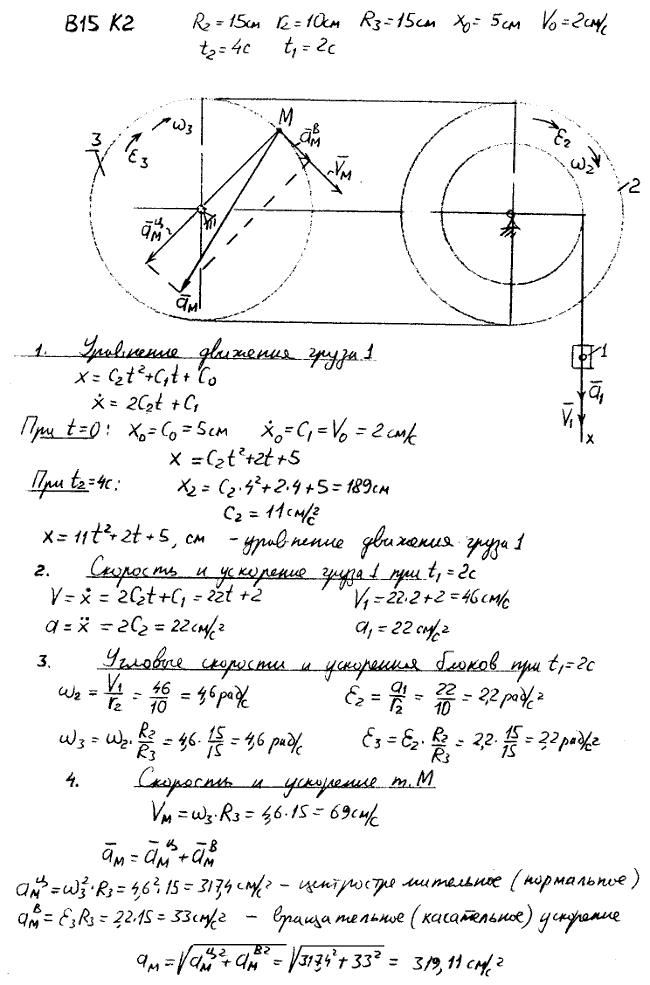 В15 К2 R₂=15см r₂=10см R₃=15см x₀=5см V₀=2см/с
t₂=4с t₁=2с
3 ε₃ ω₃ M a̅ᴹᴮ V̅ᴹ ε₂ ω₂ 2
a̅ᴹᶣ
a̅ᴹ
1
a̅₁
V̅₁
x
1. Уравнение движения груза 1
x=C₂t²+C₁t+C₀
ẋ=2C₂t+C₁
При t=0: x₀=C₀=5см ẋ₀=C₁=V₀=2см/с
x=C₂t²+2t+5
При t₂=4с: x₂=C₂·4²+2·4+5=189см
C₂=11см/с²
x=11t²+2t+5, см - уравнение движения груза 1
2. Скорость и ускорение груза 1 при t₁=2с
V=ẋ=2C₂t+C₁=22t+2 V₁=22·2+2=46см/с
a=ẍ=2C₂=22см/с² a₁=22см/с²
3. Угловые скорости и ускорения блоков при t₁=2с
ω₂=V₁/r₂=46/10=4,6рад/с ε₂=a₁/r₂=22/10=2,2рад/с²
ω₃=ω₂·R₂/R₃=4,6·15/15=4,6рад/с ε₃=ε₂·R₂/R₃=2,2·15/15=2,2рад/с²
4. Скорость и ускорение т.М
Vм=ω₃·R₃=4,6·15=69см/с
a̅м=a̅мᶣ+a̅мᴮ
aмц=ω₃²·R₃=4,6²·15=317,4см/с² - центростремительное (нормальное)
aмв=ε₃R₃=2,2·15=33см/с² - вращательное (касательное) ускорение
aм=√(aмц²+aмв²)=√(317,4²+33²)=319,11см/с²